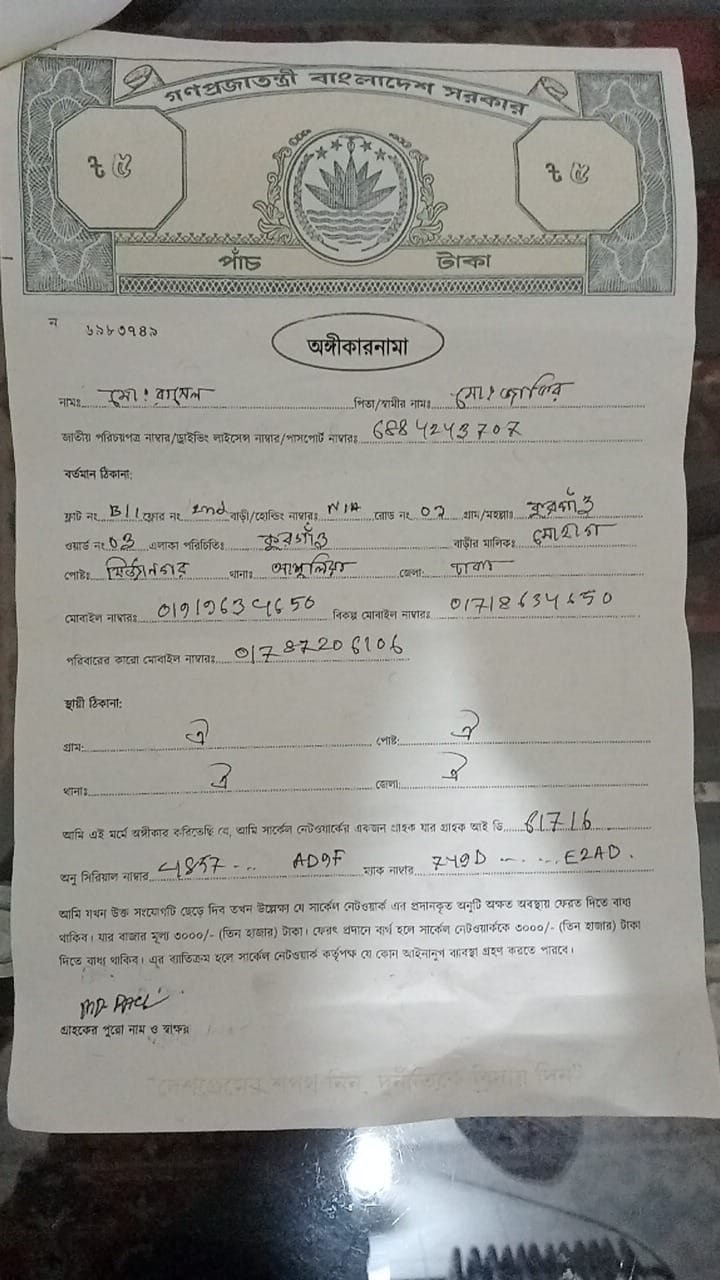 গণপ্রজাতন্ত্রী বাংলাদেশ সরকার
৳ ৫ ৳ ৫
পাঁচ টাকা
ন ৬৯৮৩৭৪৯
অঙ্গীকারনামা
নামঃ মোঃ রাসেল পিতা/স্বামীর নামঃ মোঃ জাকির
জাতীয় পরিচয়পত্র নাম্বার/ড্রাইভিং লাইসেন্স নাম্বার/পাসপোর্ট নাম্বারঃ 6884243707
বর্তমান ঠিকানা:
ফ্লাট নং B11 ফ্লোর নং 2nd বাড়ী/হোল্ডিং নাম্বারঃ N/A রোড নং 07 গ্রাম/মহল্লাঃ কুরগাঁও
ওয়ার্ড নং 03 এলাকা পরিচিতিঃ কুরগাঁও বাড়ীর মালিকঃ সোহাগ
পোষ্টঃ মির্জানগর থানাঃ আশুলিয়া জেলা: ঢাকা
মোবাইল নাম্বারঃ 01919634650 বিকল্প মোবাইল নাম্বারঃ 01718634650
পরিবারের কারো মোবাইল নাম্বারঃ 01787206106
স্থায়ী ঠিকানা:
গ্রাম: ঐ পোষ্ট: ঐ
থানাঃ ঐ জেলা: ঐ
আমি এই মর্মে অঙ্গীকার করিতেছি যে, আমি সার্কেল নেটওয়ার্কের একজন গ্রাহক যার গ্রাহক আই ডি 61716
অনু সিরিয়াল নাম্বার 4857... AD9F ম্যাক নাম্বার 749D ...... E2AD.
আমি যখন উক্ত সংযোগটি ছেড়ে দিব তখন উল্লেক্ষ্য যে সার্কেল নেটওয়ার্ক এর প্রদানকৃত অনুটি অক্ষত অবস্থায় ফেরত দিতে বাধ্য
থাকিব। যার বাজার মূল্য ৩০০০/- (তিন হাজার) টাকা। ফেরৎ প্রদানে ব্যর্থ হলে সার্কেল নেটওয়ার্ককে ৩০০০/- (তিন হাজার) টাকা
দিতে বাধ্য থাকিব। এর ব্যাতিক্রম হলে সার্কেল নেটওয়ার্ক কর্তৃপক্ষ যে কোন আইনানুগ ব্যাবস্থা গ্রহণ করতে পারবে।
গ্রাহকের পুরো নাম ও স্বাক্ষর
"দেশপ্রেমের শপথ নিন, দুর্নীতিকে বিদায় দিন"